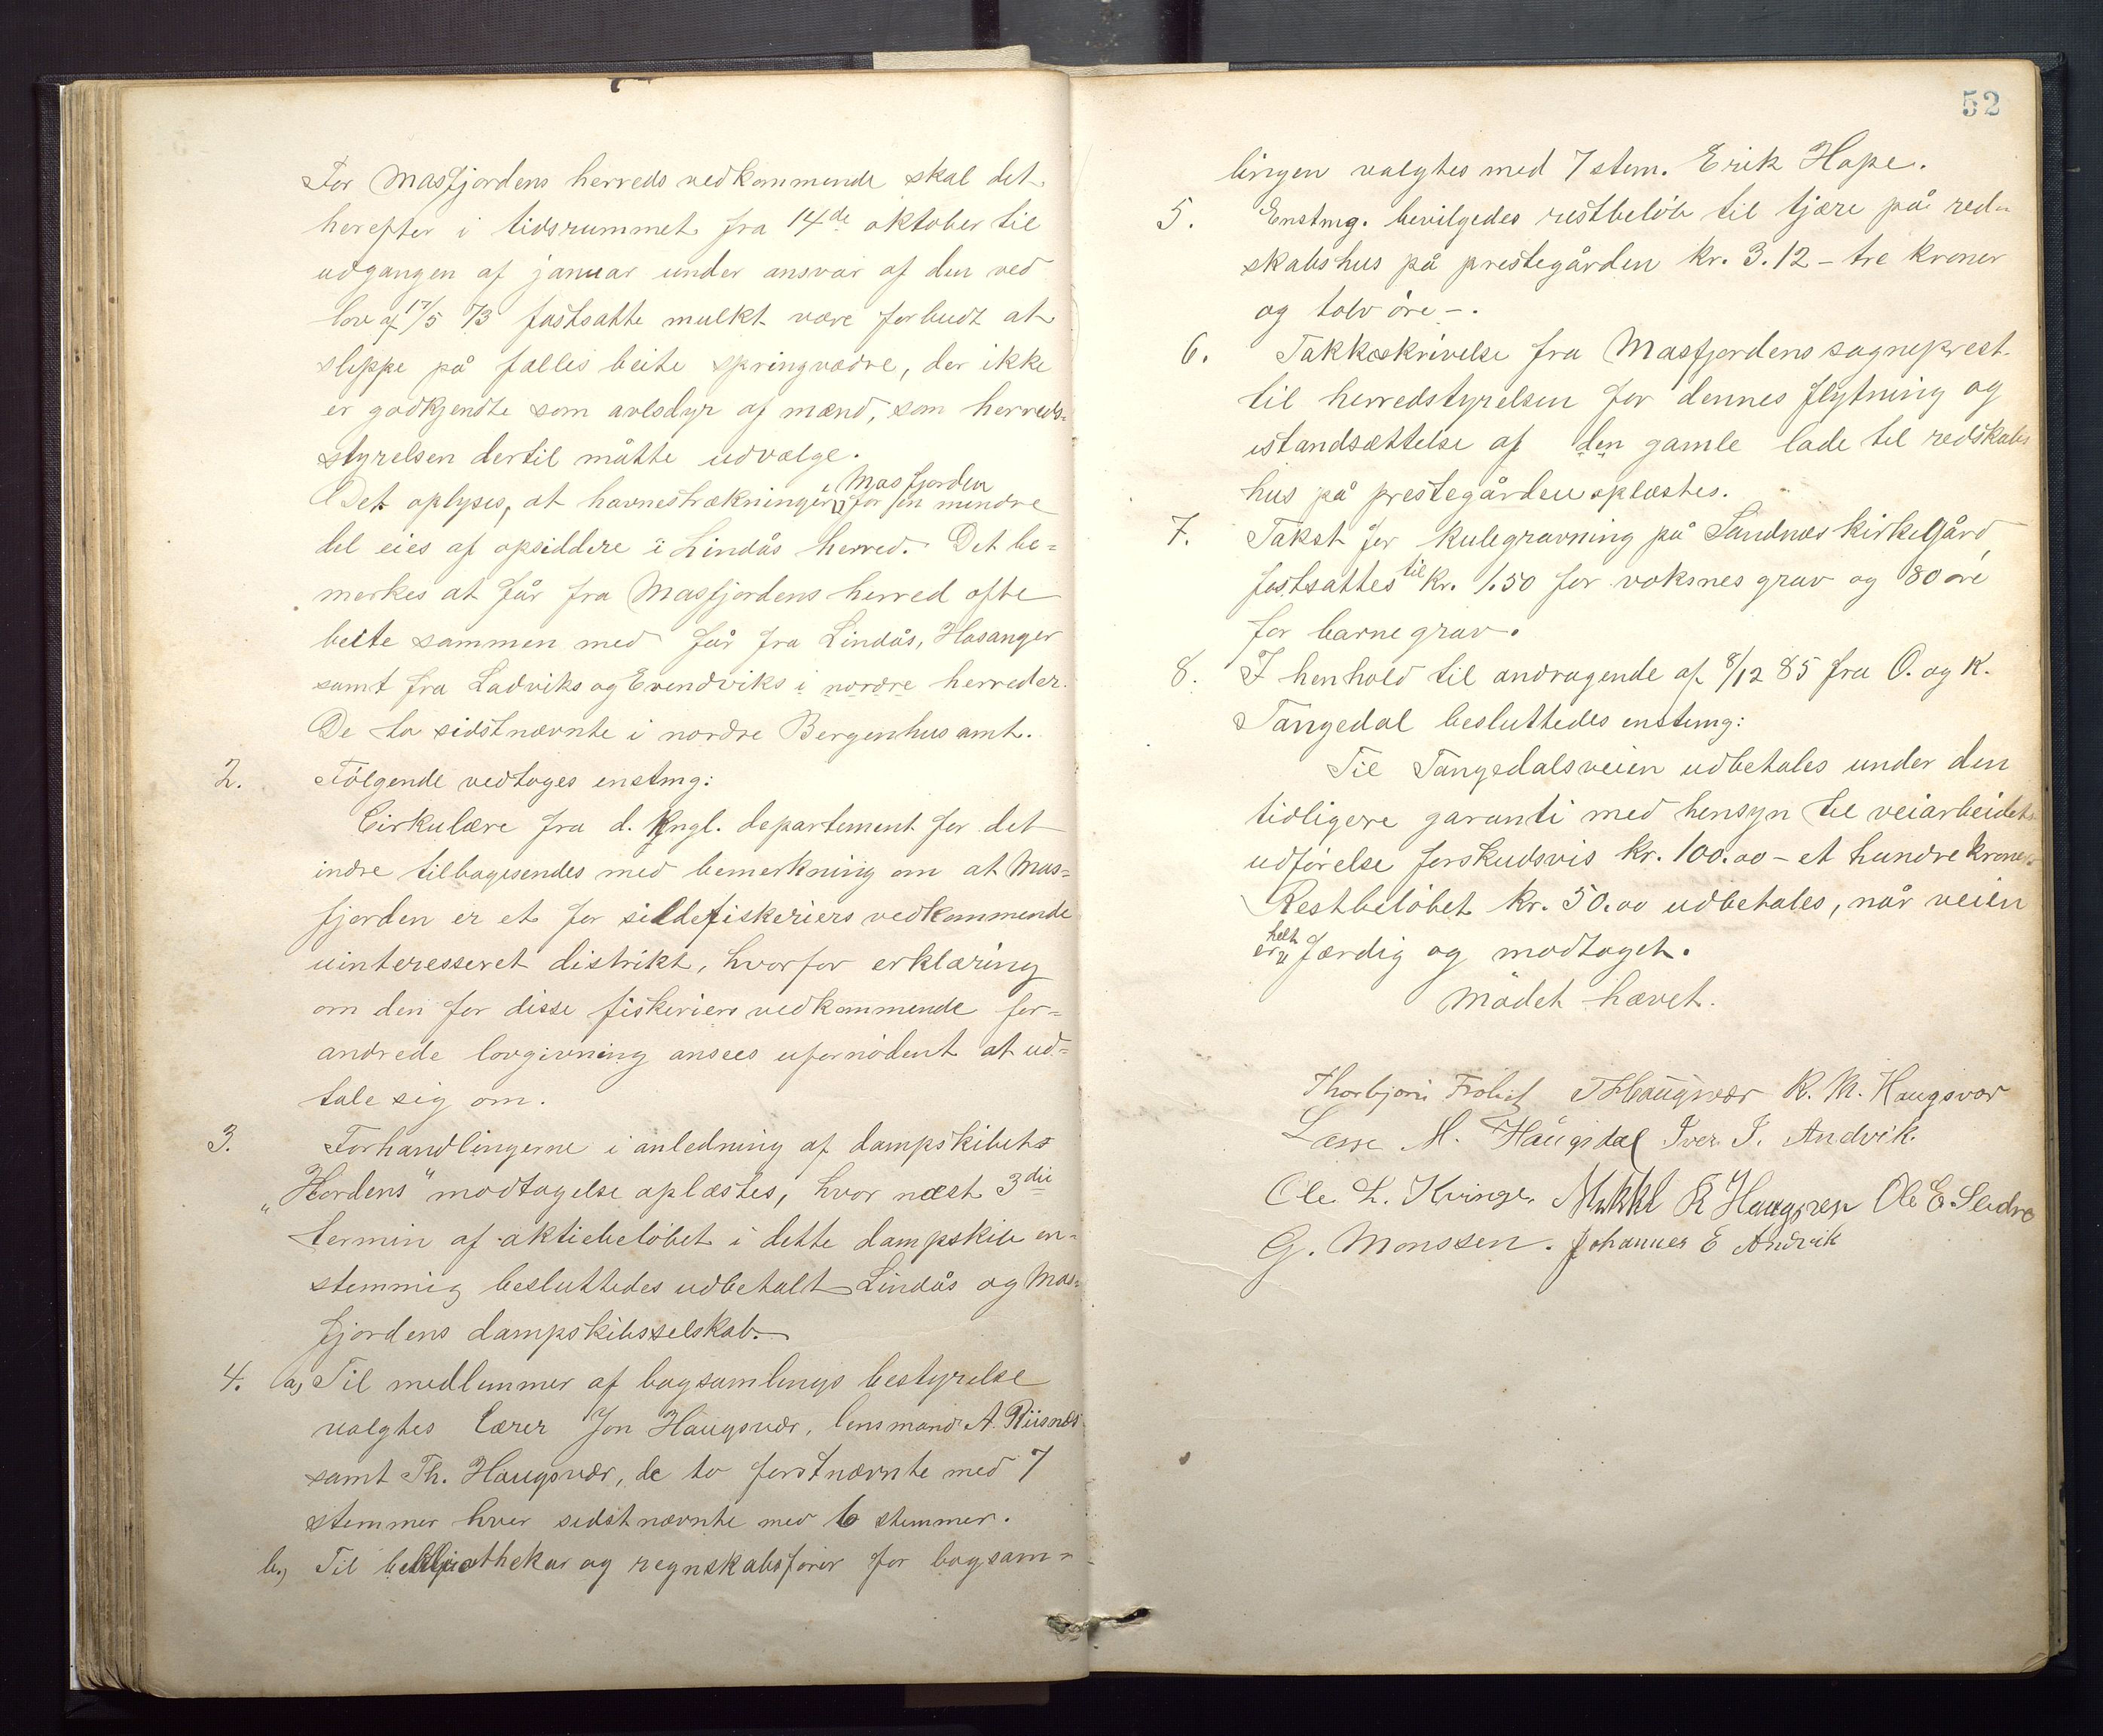 For Masfjordens herreds vedkommende skal det
herefter i tidsrummet fra 14de oktober til
udgangen af januar under ansvar af den ved
lov af 17/5 73 fastsatte mulkt være forbudt at
slippe på fælles beite springvædre, der ikke
er godkjendte som avlsdyr af mænd, som herreds-
styrelsen dertil måtte udvælge.
Det oplyses, at havnestrækninger i Masfjorden for en mindre
del eies af opsiddere i Lindås herred. Det be-
merkes at får fra Masfjordens herred ofte
beite sammen med får fra Lindås, Hosanger
samt fra Ladviks og Evendviks i nordre herreder.
De to sidstnævnte i nordre Bergenhus amt.
2. Følgende vedtoges enstmg:
Cirkulære fra d. kngl. departement for det
indre tilbagesendes med bemerkning om at Mas-
fjorden er et for sildefiskeriers vedkommende
uinteresseret distrikt, hvorfor erklæring
om den for disse fiskeriers vedkommende for-
andrede lovgivning ansees ufornødent at ud-
tale sig om.
3. Forhandlingerne i anledning af dampskibets
"Hordens" modtagelse oplæstes, hvor næst 3die
termin af aktiebeløbet i dette dampskib en-
stemmig besluttedes udbetalt Lindås og Mas-
fjordens dampskibsselskab.
4. a) Til medlemmer af bogsamlings bestyrelse
valgtes lærer Jon Haugsvær, lensmand A. Riisnes
samt Th. Haugsvær, de to førstnævnte med 7
stemmer hver sidstnævnte med 6 stemmer.
b.) Til bibliothekar og regnskabsfører for bogsam-
52
lingen valgtes med 7 stem. Erik Hope.
5. Enstmg. bevilgedes restbeløb til tjære på red-
skabshus på prestegården kr. 3.12 - tre kroner
og tolv øre -.
6. Takkeskrivelse fra Masfjordens sogneprest
til herredstyrelsen for dennes flytning og
istandsættelse af den gamle lade til redskabs
hus på prestegården oplæstes.
7. Takst for kulegravning på Sandnes kirkegård
fastsattes til kr. 1.50 for voksnes grav og 80 øre
for barnegrav.
8. I henhold til andragende af 8/12 85 fra O. og K.
Tangedal besluttedes enstemg:
Til Tangedalsveien udbetales under den
tidligere garanti med hensyn til veiarbeidets
udførelse forskudsvis kr. 100.00 - et hundre kroner.
Restbeløbet kr. 50.00 udbetales, når veien
er helt færdig og modtaget.
Mødet hævet.
Thorbjørn Frølich T Haugsvær R. M. Haugsvær
Lasse M. Haugsdal Iver I. Andvik.
Ole L. Kvinge. Mikkel R Haugsvær Ole E. Sleidre
G. Monssen. Johannes E Andvik